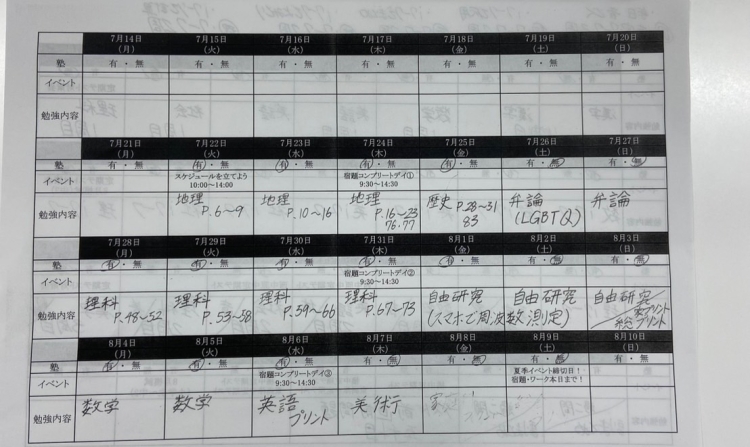 7月14日 7月15日 7月16日 7月17日 7月18日 7月19日 7月20日
(月) (火) (水) (木) (金) (土) (日)
塾 有・無 有・無 有・無 有・無 有・無 有・無 有・無
イベント
勉強内容
7月21日 7月22日 7月23日 7月24日 7月25日 7月26日 7月27日
(月) (火) (水) (木) (金) (土) (日)
塾 有・無 有・無 有・無 有・無 有・無 有・無 有・無
イベント スケジュールを立てよう 宿題コンプリートデイ①
10:00～14:00 9:30～14:30
勉強内容 地理 地理 地理 歴史 P.28～31 弁論 弁論
P.6～9 P.10～16 P.16～23 83 (LGBTQ)
76,77
7月28日 7月29日 7月30日 7月31日 8月1日 8月2日 8月3日
(月) (火) (水) (木) (金) (土) (日)
塾 有・無 有・無 有・無 有・無 有・無 有・無 有・無
イベント 宿題コンプリートデイ②
9:30～14:30
勉強内容 理科 理科 理科 理科 自由研究 自由研究 自由研究
P.48～52 P.53～58 P.59～66 P.67～73 (スマホで周波数測定) プリント
プリント
8月4日 8月5日 8月6日 8月7日 8月8日 8月9日 8月10日
(月) (火) (水) (木) (金) (土) (日)
塾 有・無 有・無 有・無 有・無 有・無 有・無 有・無
イベント 宿題コンプリートデイ③ 夏季イベント締切日！
9:30～14:30 宿題・ワーク本日まで！
勉強内容 数学 数学 英語 美術
プリント